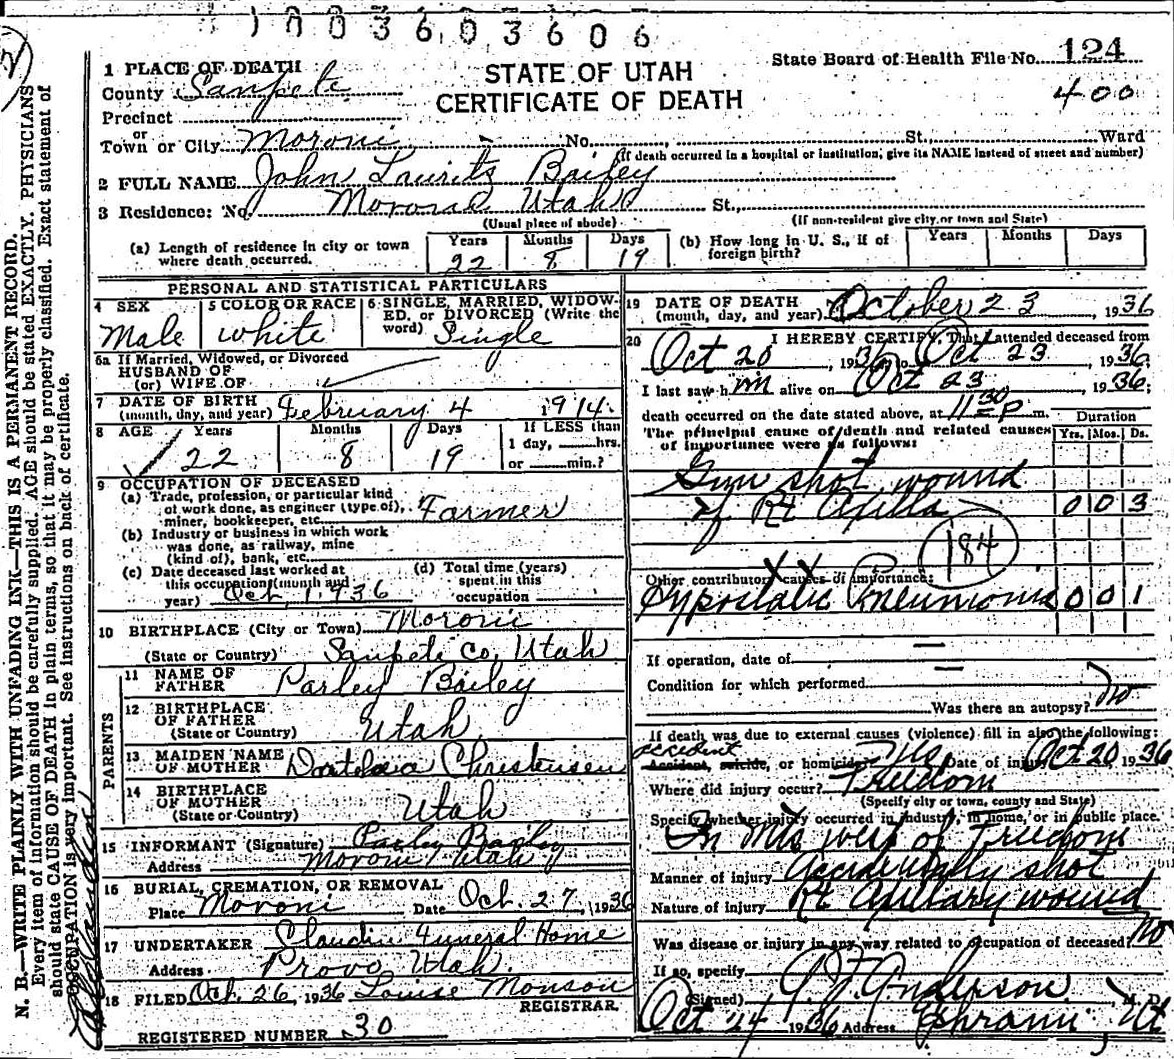 1003603606
State Board of Health File No. 124
400
STATE OF UTAH
CERTIFICATE OF DEATH
1 PLACE OF DEATH
County Sanpete
Precinct
or
Town or City Moroni No. St., Ward
(If death occurred in a hospital or institution, give its NAME instead of street and number)
2 FULL NAME John Lauritz Bailey
3 Residence: No. Moroni Utah St.,
(Usual place of abode) (If non-resident give city or town and State)
(a) Length of residence in city or town where death occurred. Years 22 Months 8 Days 19
(b) How long in U. S., if of foreign birth? Years Months Days
PERSONAL AND STATISTICAL PARTICULARS
4 SEX Male
5 COLOR OR RACE white
6 SINGLE, MARRIED, WIDOWED, or DIVORCED (Write the word) Single
6a If Married, Widowed, or Divorced
HUSBAND OF
(or) WIFE OF
7 DATE OF BIRTH
(month, day, and year) February 4 1914
8 AGE Years 22 Months 8 Days 19 If LESS than 1 day, hrs. or min.?
9 OCCUPATION OF DECEASED
(a) Trade, profession, or particular kind of work done, as engineer (type of), miner, bookkeeper, etc. Farmer
(b) Industry or business in which work was done, as railway, mine (kind of), bank, etc.
(c) Date deceased last worked at this occupation (month and year) Oct 1936
(d) Total time (years) spent in this occupation
10 BIRTHPLACE (City or Town) Moroni
(State or Country) Sanpete Co, Utah
PARENTS
11 NAME OF FATHER Parley Bailey
12 BIRTHPLACE OF FATHER
(State or Country) Utah
13 MAIDEN NAME OF MOTHER Christensen
14 BIRTHPLACE OF MOTHER
(State or Country) Utah
15 INFORMANT (Signature) Parley Bailey
Address Moroni Utah
16 BURIAL, CREMATION, OR REMOVAL
Place Moroni Date Oct. 27, 1936
17 UNDERTAKER Claudin Funeral Home
Address Provo Utah.
18 FILED Oct. 26, 1936 Louise Monson
REGISTRAR.
REGISTERED NUMBER 30
19 DATE OF DEATH
(month, day, and year) October 23, 1936
20 I HEREBY CERTIFY, That I attended deceased from
Oct 20, 1936, to Oct 23, 1936,
I last saw him alive on Oct 23, 1936;
death occurred on the date stated above, at 11 30 P m.
The principal cause of death and related causes of importance were as follows:
Duration
Yrs. Mos. Ds.
Gun shot wound
of Rt Axilla 0 0 3
184
Other contributory causes of importance:
Hypostatic Pneumonia 0 0 1
If operation, date of —
Condition for which performed —
Was there an autopsy? No
If death was due to external causes (violence) fill in also the following:
accident
Accident, suicide, or homicide? Yes Date of injury Oct 20, 1936
Where did injury occur? Freedom
(Specify city or town, county and State)
Specify whether injury occurred in industry, in home, or in public place.
In Mts west of Freedom
Manner of injury Accidentally shot
Nature of injury Rt Axillary wound
Was disease or injury in any way related to occupation of deceased? No
If so, specify
(Signed) Anderson, M. D.
Oct 24 1936 Address Ephraim, Ut
N. B.—WRITE PLAINLY WITH UNFADING INK—THIS IS A PERMANENT RECORD.
Every item of information should be carefully supplied. AGE should be stated EXACTLY. PHYSICIANS
should state CAUSE OF DEATH in plain terms, so that it may be properly classified. Exact statement of
OCCUPATION is very important. See instructions on back of certificate.